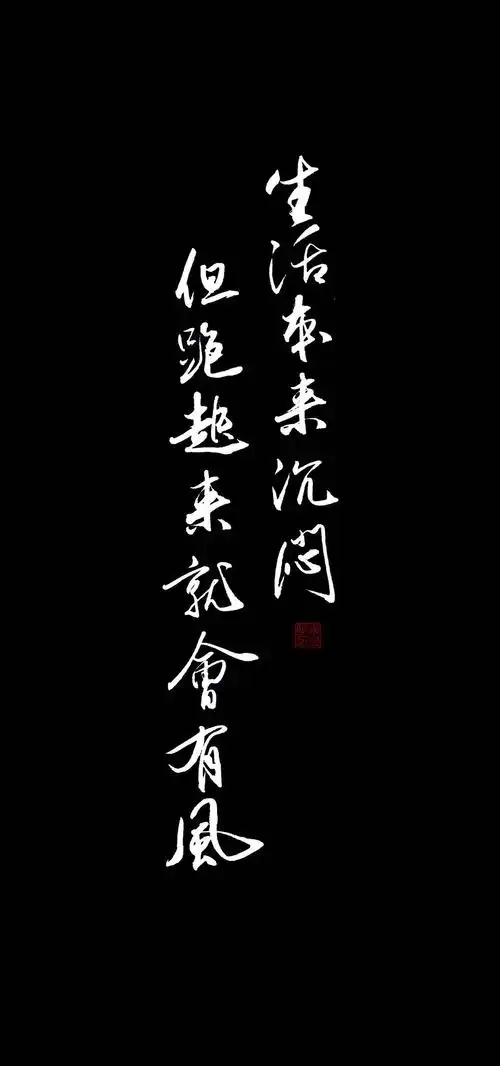 生活本来沉闷
但跑起来就會有風